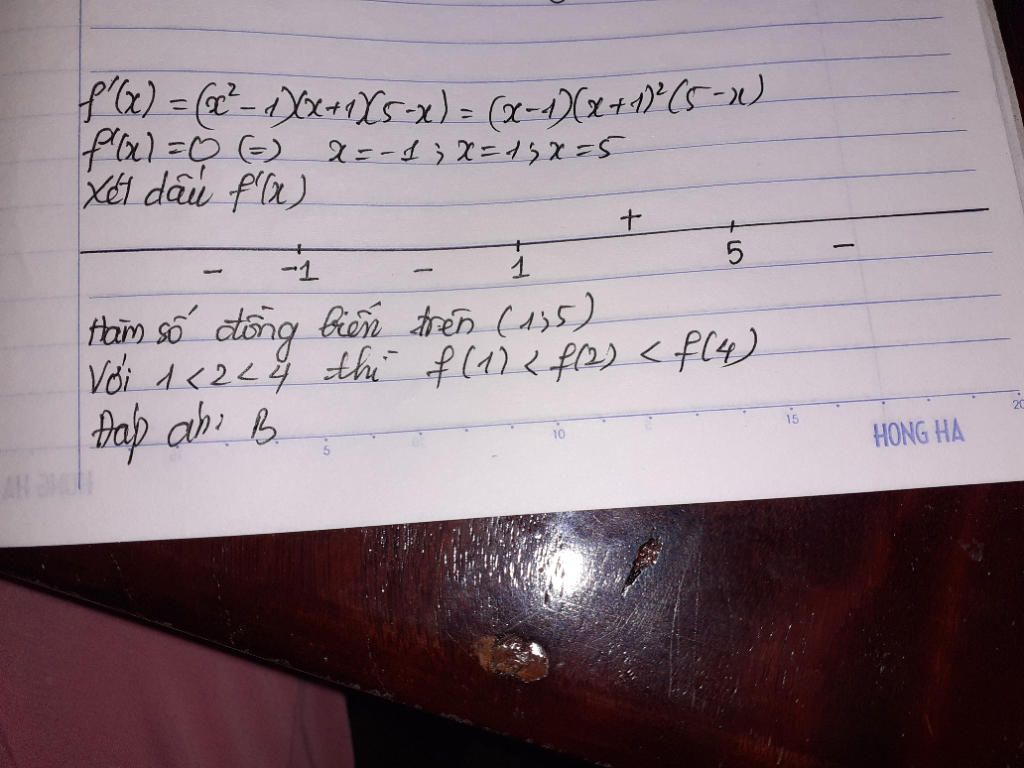 f'(x) = (x² - 1)(x+1)(5-x) = (x-1)(x+1)²(5-x)
f'(x) = 0 (=) x = -1 ; x = 1 ; x = 5
Xét dấu f'(x)
+
- -1 - 1 5 -
Hàm số đồng biến trên (1;5)
Với 1 < 2 < 4 thì f(1) < f(2) < f(4)
Đáp án: B
5 10 15 20
HONG HA